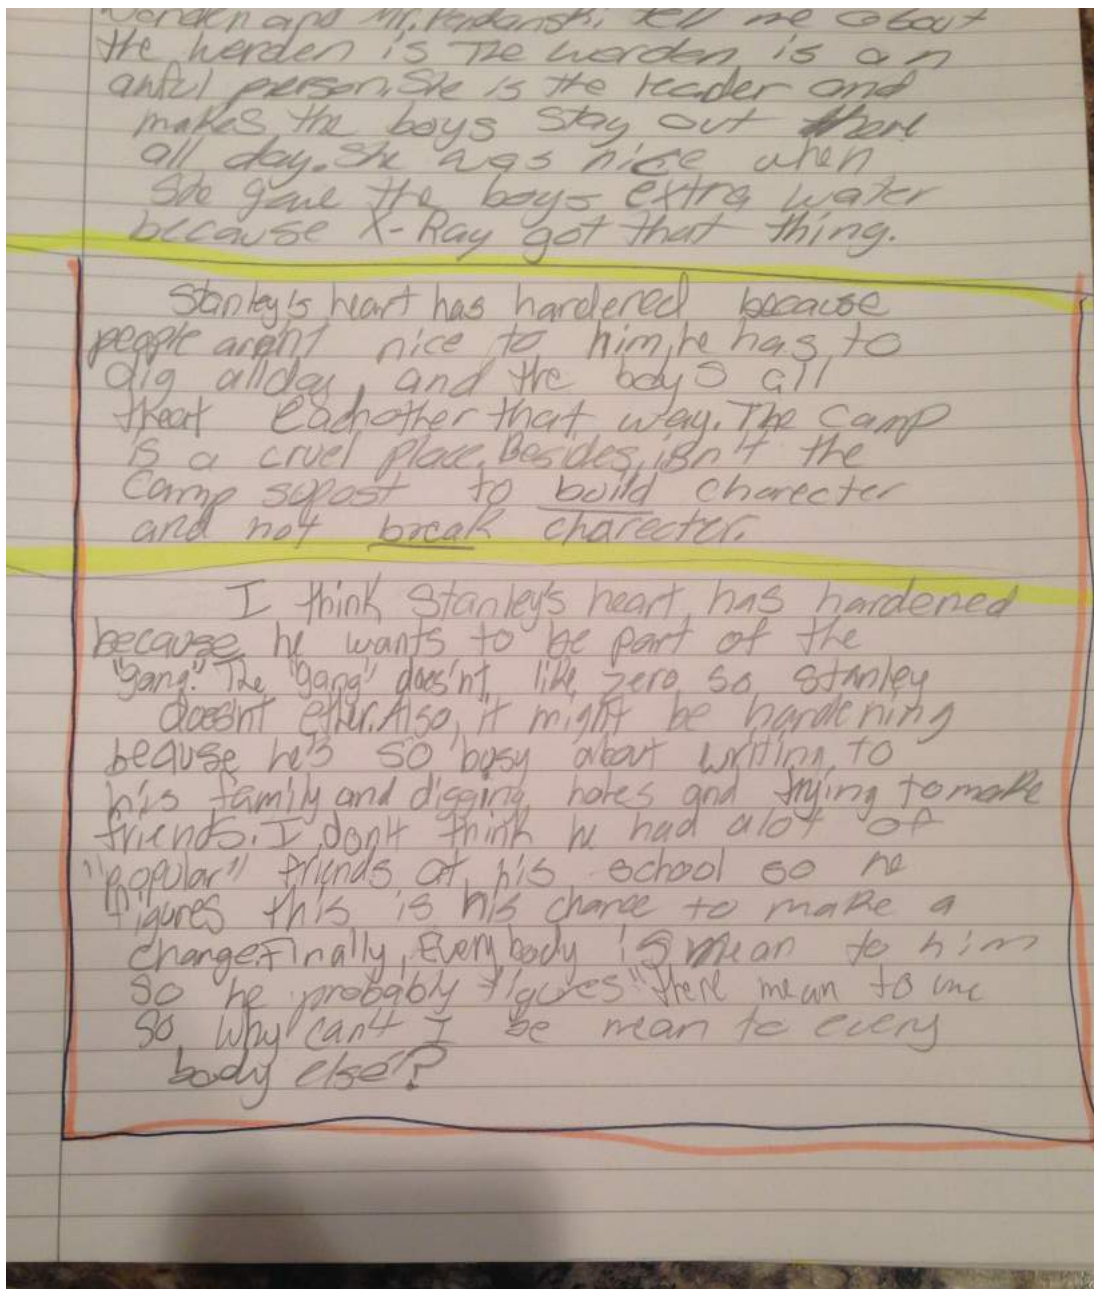 Warden and Mr. Pendanski tell me about
the werden is The worden is an
awful person. She is the leader and
makes the boys stay out there
all day. She was nice when
she gave the boys extra water
because X-Ray got that thing.
Stanley's heart has hardened because
people aren't nice to him, he has to
dig allday, and the boys all
treat eachother that way. The camp
is a cruel place. Besides, isn't the
camp sopost to build charecter
and not break charecter.
I think Stanley's heart has hardened
because he wants to be part of the
"gang." The "gang" does'nt like zero so stanley
doesnt ether. Also, it might be hardening
beause he's so busy about writing to
his family and digging holes and trying to make
friends. I don't think he had alot of
"popular" friends at his school so he
figures this is his chance to make a
change. Finally, Everybody is mean to him
so he probably figures "there mean to me
so why can't I be mean to every
body else"?